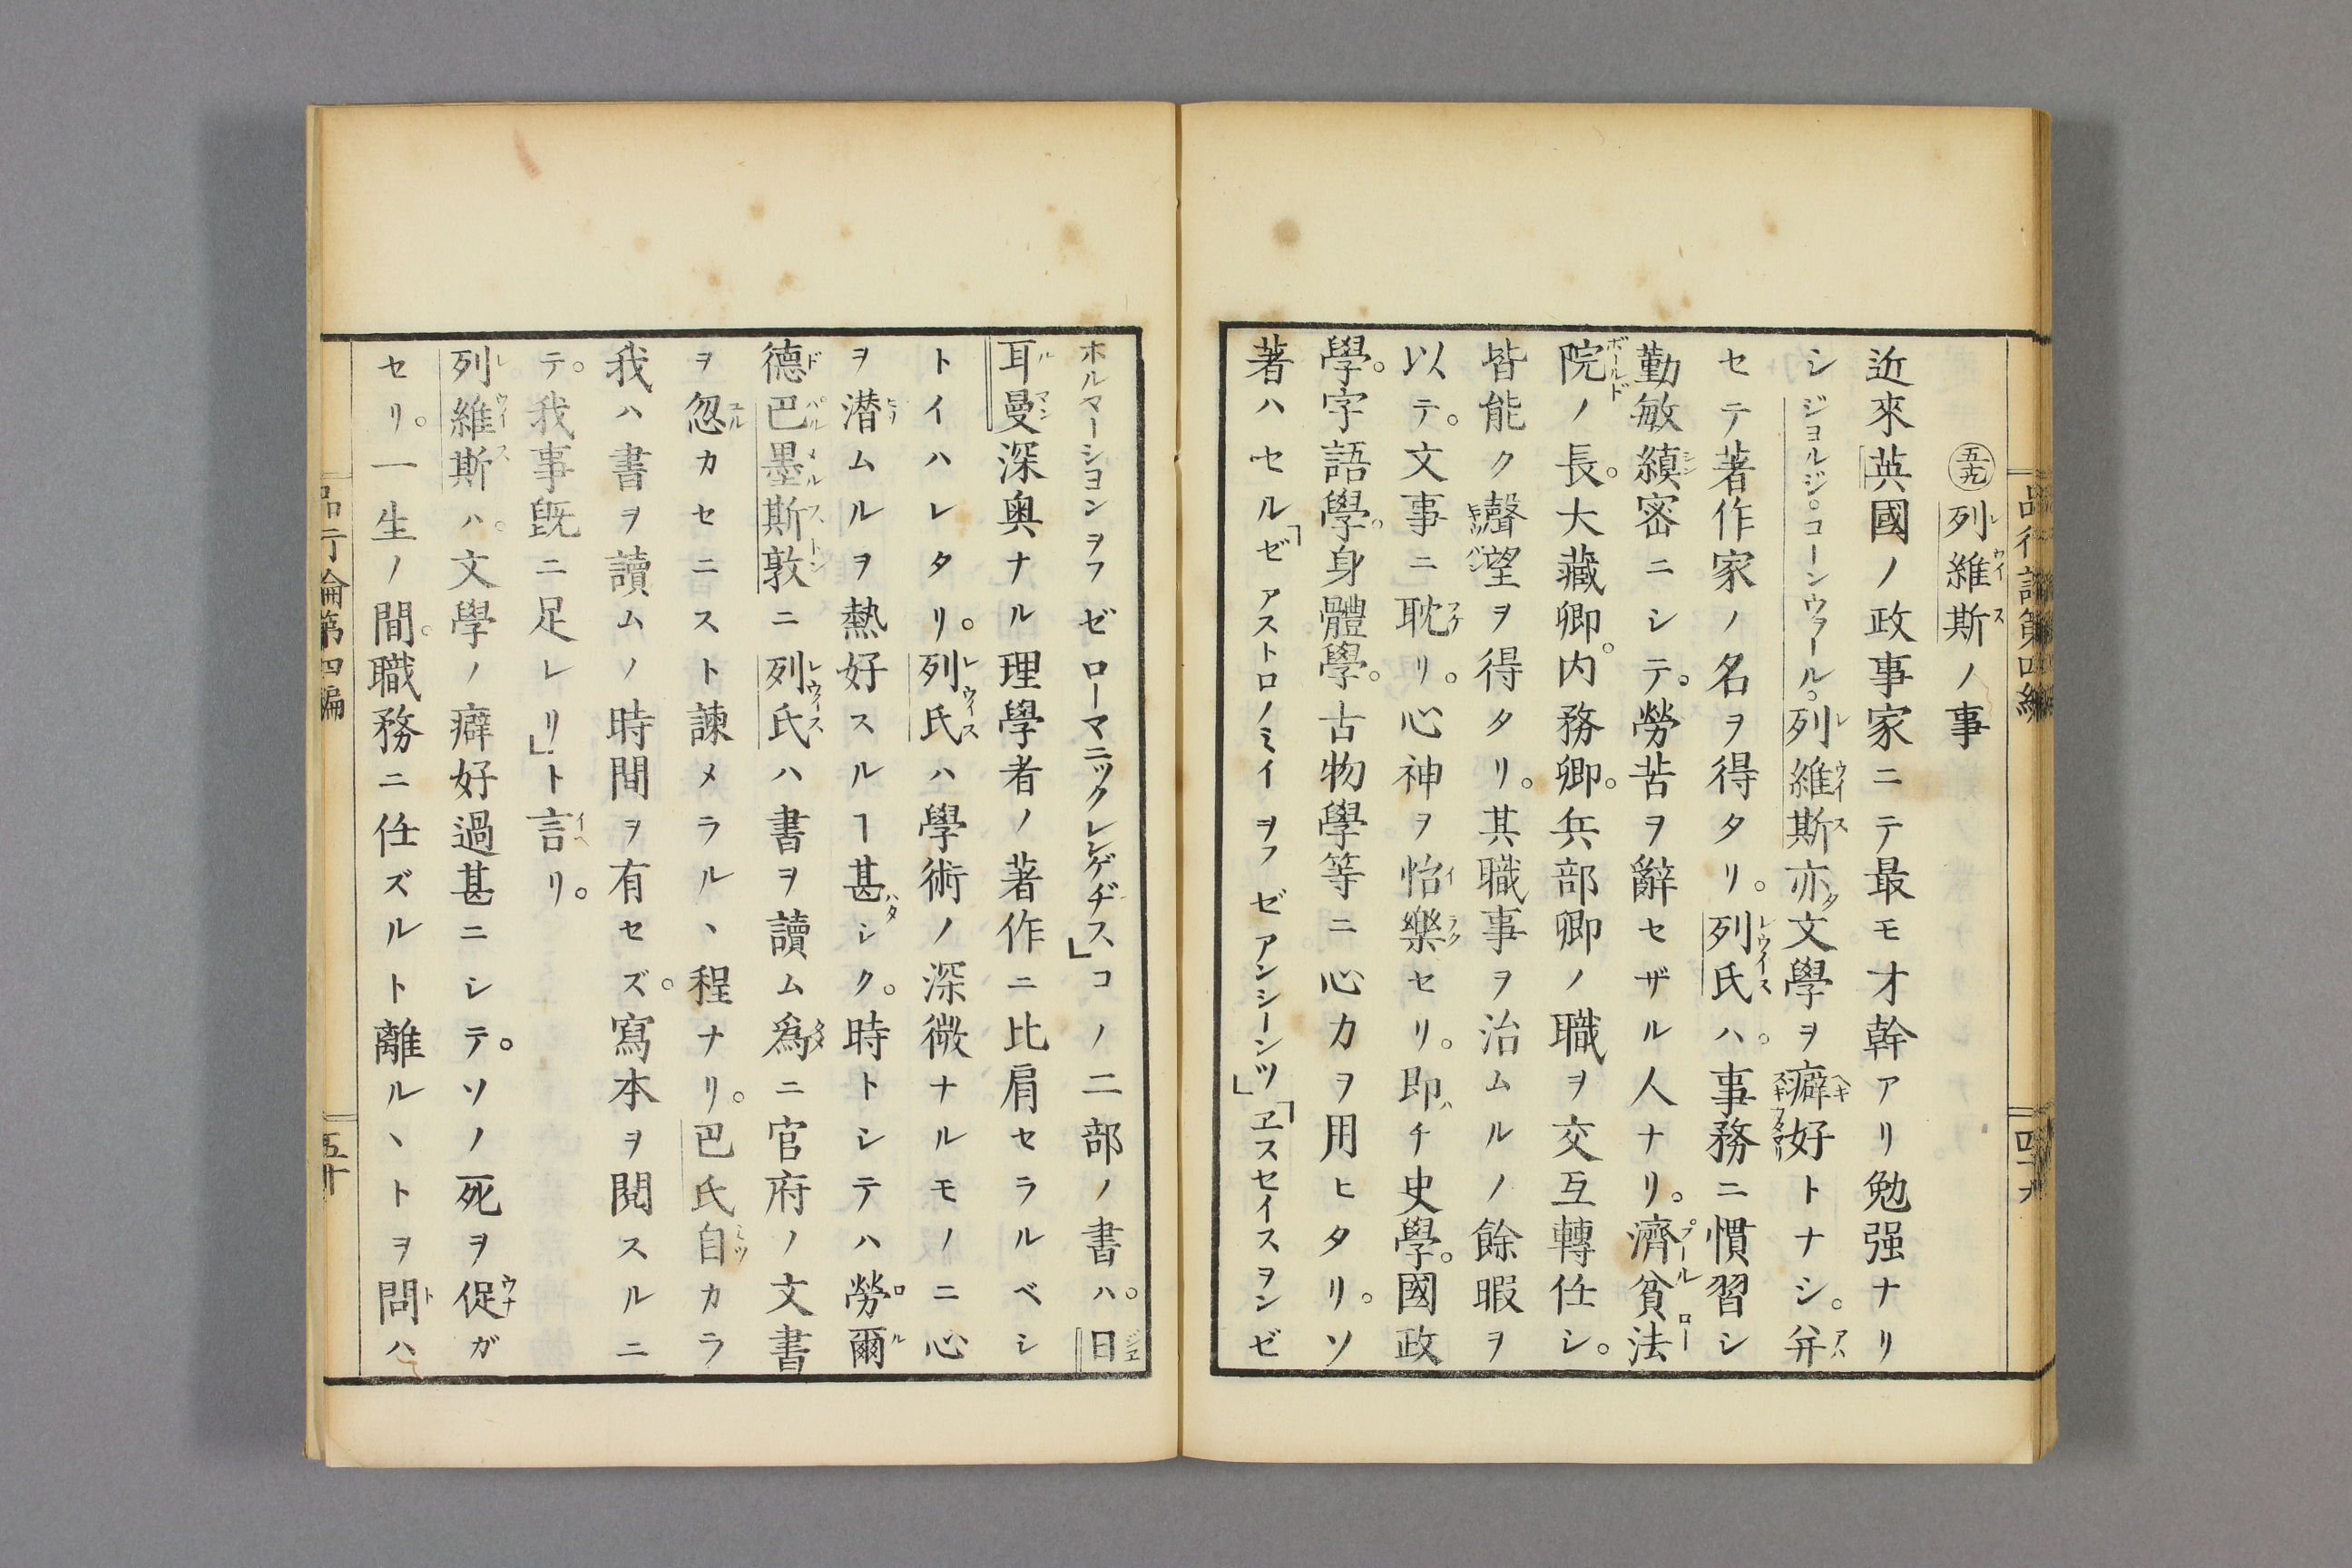 品行論第四編
四十九
㊄㊈ 列維斯ノ事
近來英國ノ政事家ニテ最モ才幹アリ勉强ナリ
シジヨルジ。コーンウァール。列維斯亦文學ヲ癖好トナシ。幷
セテ著作家ノ名ヲ得タリ。列氏ハ。事務ニ慣習シ
勤敏縝密ニシテ。勞苦ヲ辭セザル人ナリ。濟貧法
院ノ長。大藏卿。内務卿。兵部卿ノ職ヲ交互轉任シ。
皆能ク聲望ヲ得タリ。其職事ヲ治ムルノ餘暇ヲ
以テ。文事ニ耽リ。心神ヲ怡樂セリ。即チ史學。國政
學。字語學。身體學。古物學等ニ心力ヲ用ヒタリ。ソ
著ハセル「ゼアストロノミイヲフゼアンシーンツ」「ヱスセイスヲンゼ
ホルマーシヨンヲフゼローマニックレンゲヂス」コノ二部ノ書ハ。日
耳曼深奥ナル理學者ノ著作ニ比肩セラルベシ
トイハレタリ。列氏ハ學術ノ深微ナルモノニ心
ヲ潜ムルヲ熱好スルヿ甚シク。時トシテハ勞爾
德巴墨斯敦ニ列氏ハ書ヲ讀ム爲ニ官府ノ文書
ヲ忽カセニスト諫メラルヽ程ナリ。巴氏自カラ
我ハ書ヲ讀ムノ時間ヲ有セズ。寫本ヲ閱スルニ
テ。我事既ニ足レリ」ト言リ。
列維斯ハ。文學ノ癖好過甚ニシテ。ソノ死ヲ促ガ
セリ。一生ノ間。職務ニ任ズルト離ルヽトヲ問ハ
品行論第四編
五十